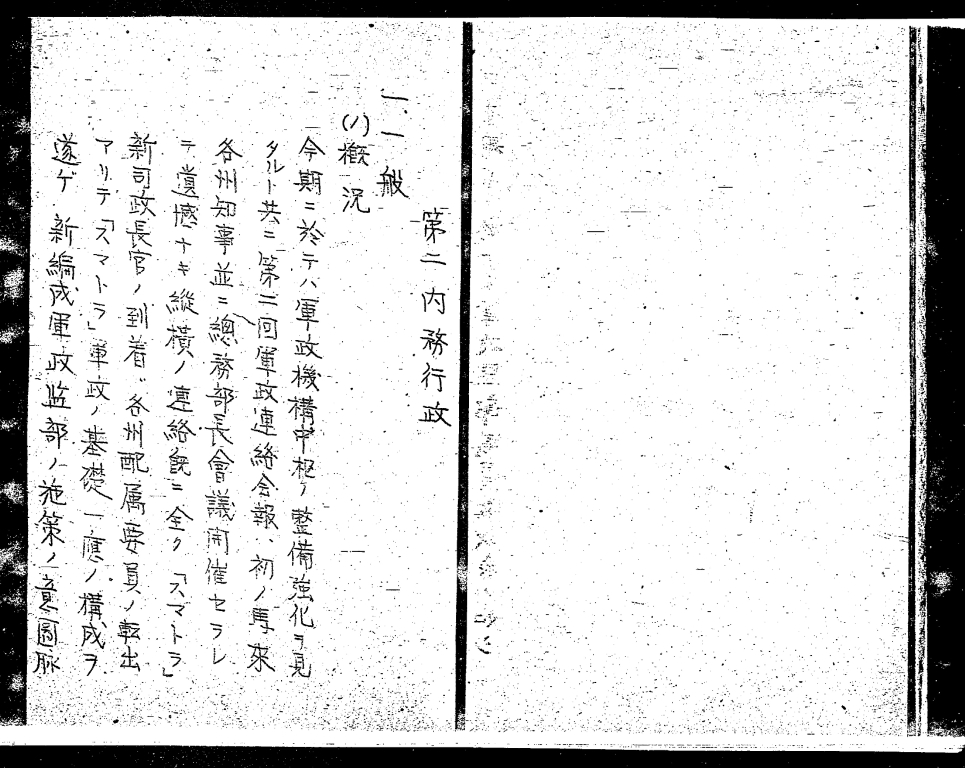 第二 内務行政
一、一般
(ハ)概況
今期ニ於テハ軍政機構中枢ノ整備強化ヲ見
タルト共ニ第二回軍政連絡会報、初ノ馬来
各州知事並ニ總務部長會議開催セラレ
テ遺憾ナキ縱横ノ連絡既ニ全ク「スマトラ」
新司政長官ノ到着、各州配属要員ノ転出
アリテ「スマトラ」軍政ノ基礎一應ノ構成ヲ
遂ゲ新編成軍政監部ノ施策ノ意圖脈